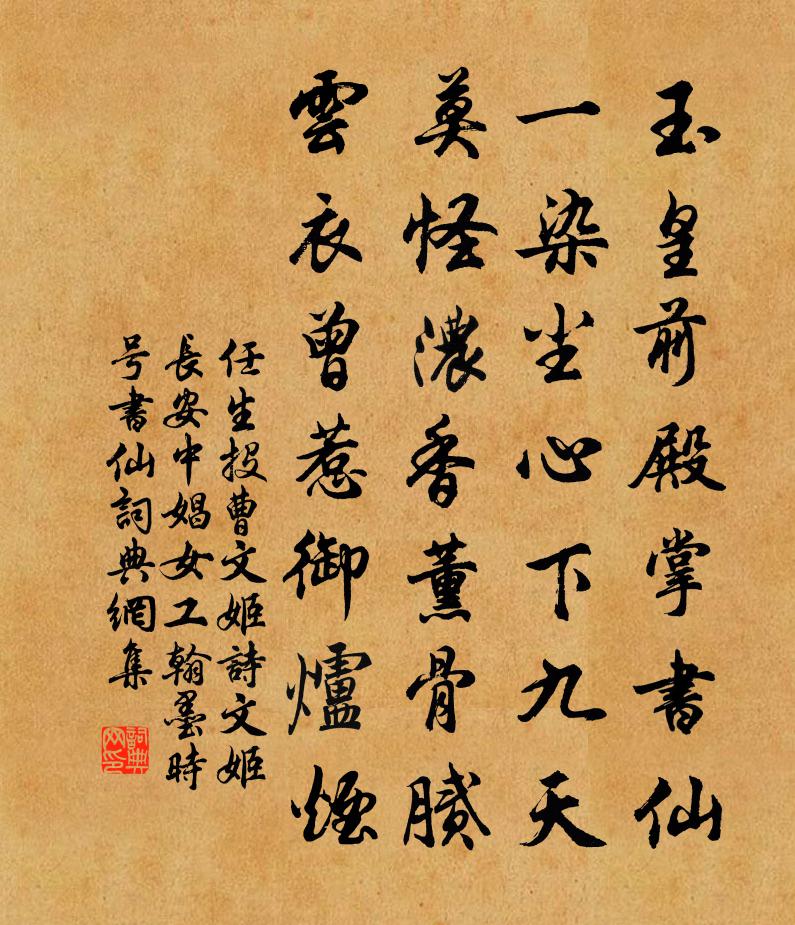 玉皇前殿掌書仙
一染尘心下九天
莫怪濃香薰骨膩
雲衣曾惹御爐煙
任生投曹文姬詩文姬
長安中娼女工翰墨時
号書仙詞典網集
詞典网印